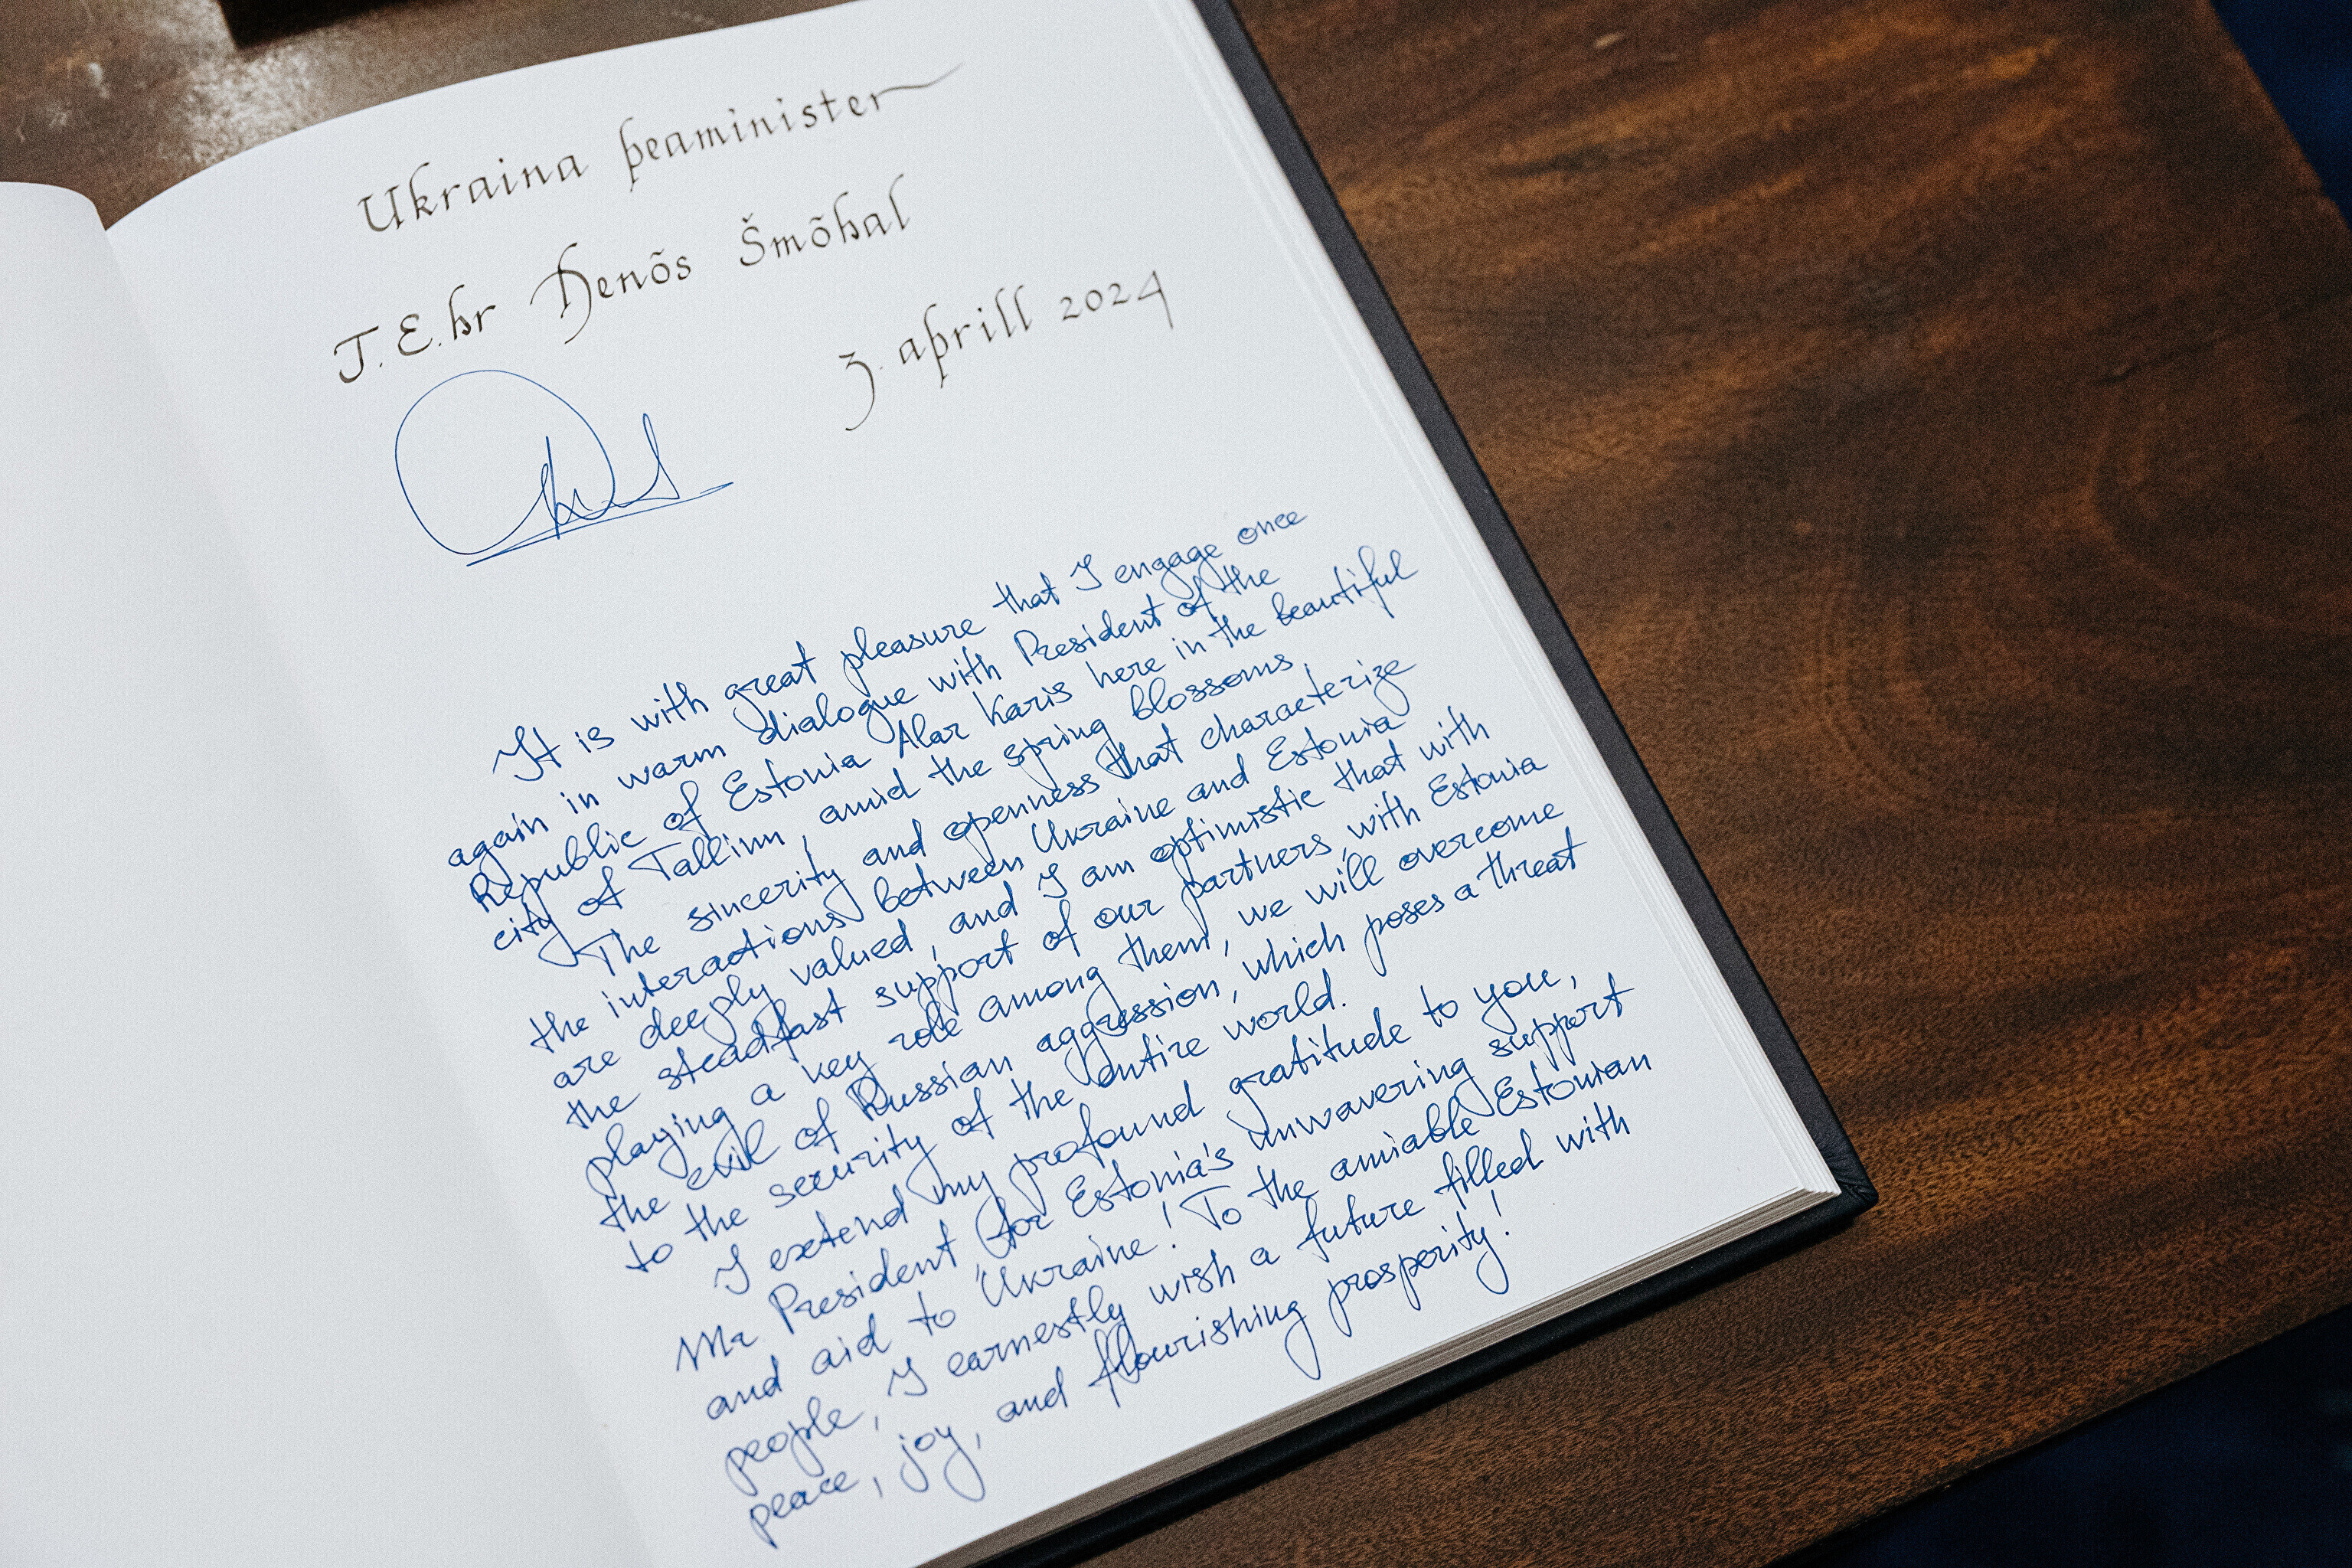 Ukraina peaminister
T.E. hr Denõs Šmõhal
3. aprill 2024
It is with great pleasure that I engage once
again in warm dialogue with President of the
Republic of Estonia Alar Karis here in the beautiful
city of Tallinn, amid the spring blossoms.
The sincerity and openness that characterize
the interactions between Ukraine and Estonia
are deeply valued, and I am optimistic that with
the steadfast support of our partners, with Estonia
playing a key role among them, we will overcome
the evil of Russian aggression, which poses a threat
to the security of the entire world.
I extend my profound gratitude to you,
Mr President, for Estonia's unwavering support
and aid to Ukraine! To the amiable Estonian
people, I earnestly wish a future filled with
peace, joy, and flourishing prosperity!